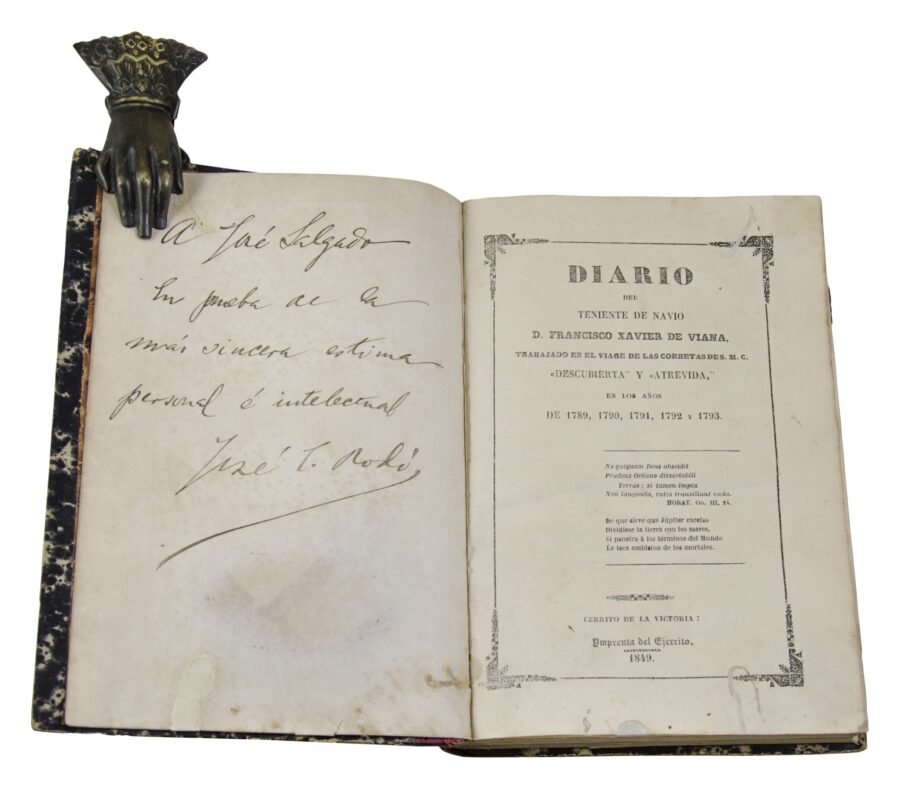 A José Salgado
En prueba de la
más sincera estima
personal é intelectual
José E. Rodó
DIARIO
DEL
TENIENTE DE NAVIO
D. FRANCISCO XAVIER DE VIANA,
TRABAJADO EN EL VIAGE DE LAS CORBETAS DE S. M. C.
«DESCUBIERTA" Y «ATREVIDA,"
EN LOS AÑOS
DE 1789, 1790, 1791, 1792 Y 1793.
Ne quiquam Deus abscidit
Prudens Océano dissociabili
Terras; si tamen impia
Non tangenda, rates transiliunt vada.
HORAT. OD. III,
De que sirve que Júpiter excelso
Dividiese la tierra con los mares,
Si penetra á los términos del Mundo
La loca ambision de los mortales.
CERRITO DE LA VICTORIA:
Ymprenta del Ejercito.
1849.